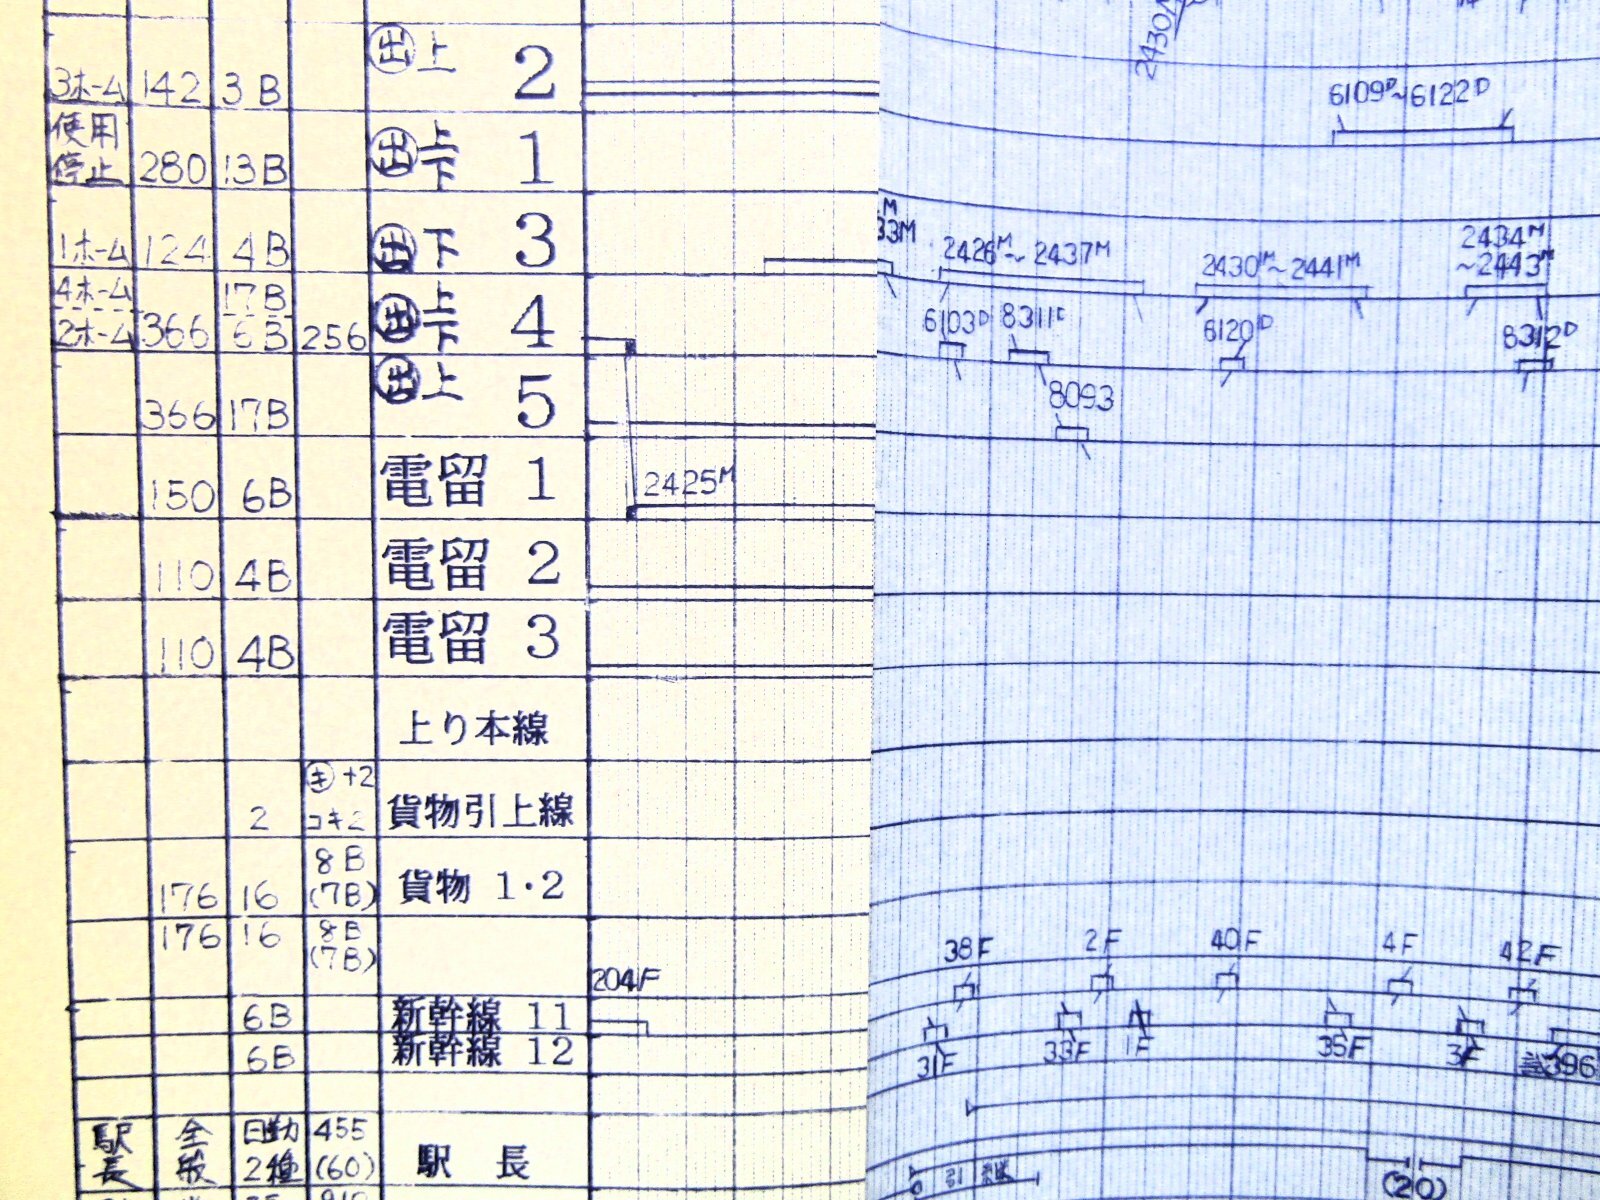 3ホーム 142 3B 出 上 2
使用
停止 280 13B 出 上
下 1
1ホーム 124 4B 出 下 3
4ホーム 17B
2ホーム 366 6B 256 出 上
下 4
366 17B 出 上 5
150 6B 電留 1
2425M
110 4B 電留 2
110 4B 電留 3
上り本線
キ +2
2 コキ2 貨物引上線
8B
176 16 (7B) 貨物 1・2
176 16 8B
(7B)
204F
6B 新幹線 11
6B 新幹線 12
駅長 全般 日勤 455
2種 (60) 駅 長
2430M
6109D~6122D
33M
2426M~2437M
2430M~2441M
2434M
~2443M
6103D 8311D
6120D
8312D
8093
38F 2F 40F 4F 42F
31F 33F 1F 35F 3F 試396
引継
(20)